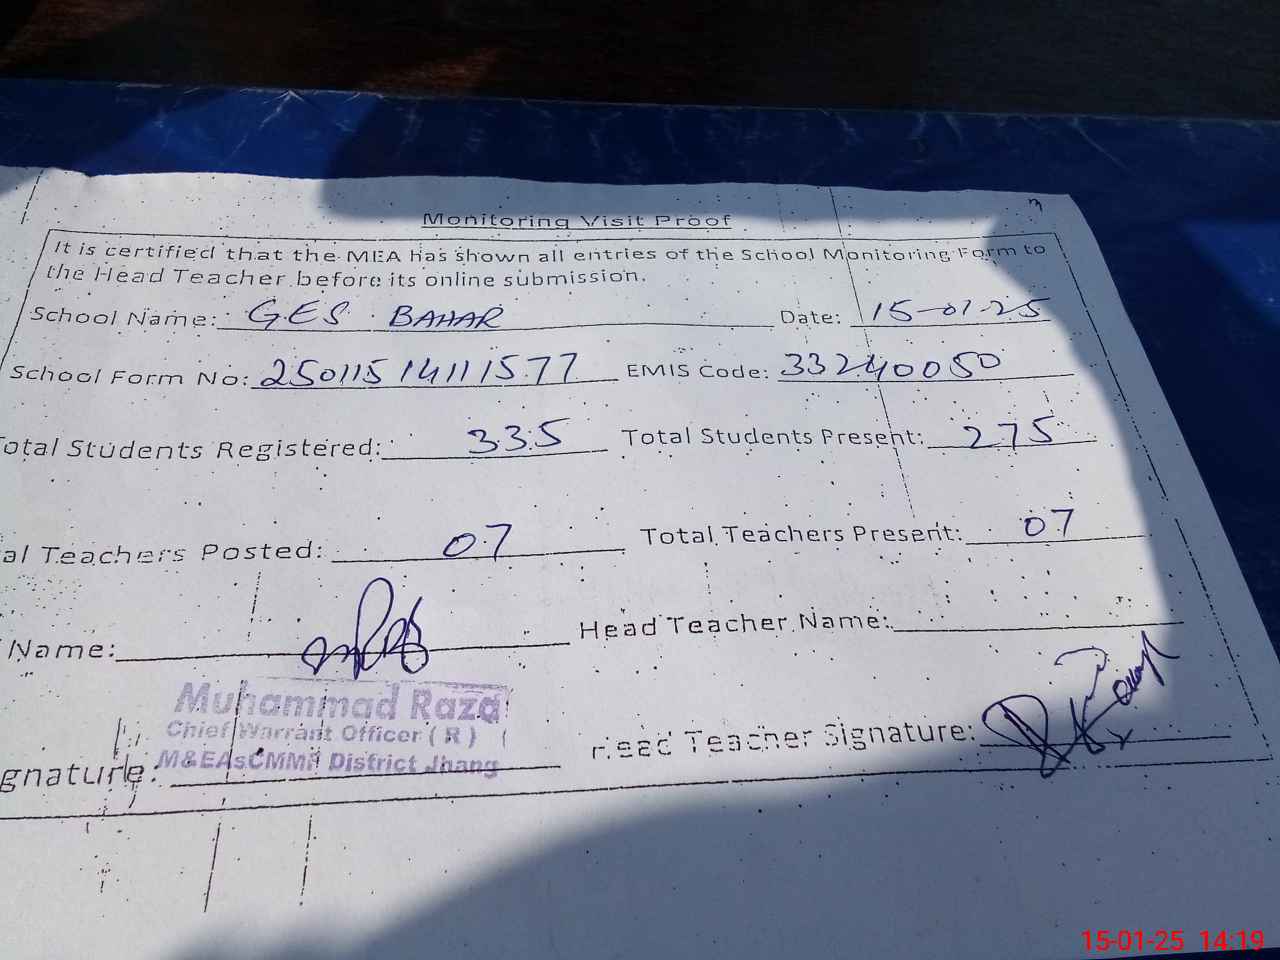 Monitoring Visit Proof
It is certified that the MEA has shown all entries of the School Monitoring Form to
the Head Teacher before its online submission.
School Name: GES BAHAR Date: 15-01-25
School Form No: 25011514111577 EMIS Code: 33240050
Total Students Registered: 335 Total Students Present: 275
al Teachers Posted: 07 Total Teachers Present: 07
Name: Head Teacher Name:
Muhammad Raza
Chief Warrant Officer ( R )
M&EAsCMMF District Jhang
gnature: Head Teacher Signature:
15-01-25 14:19